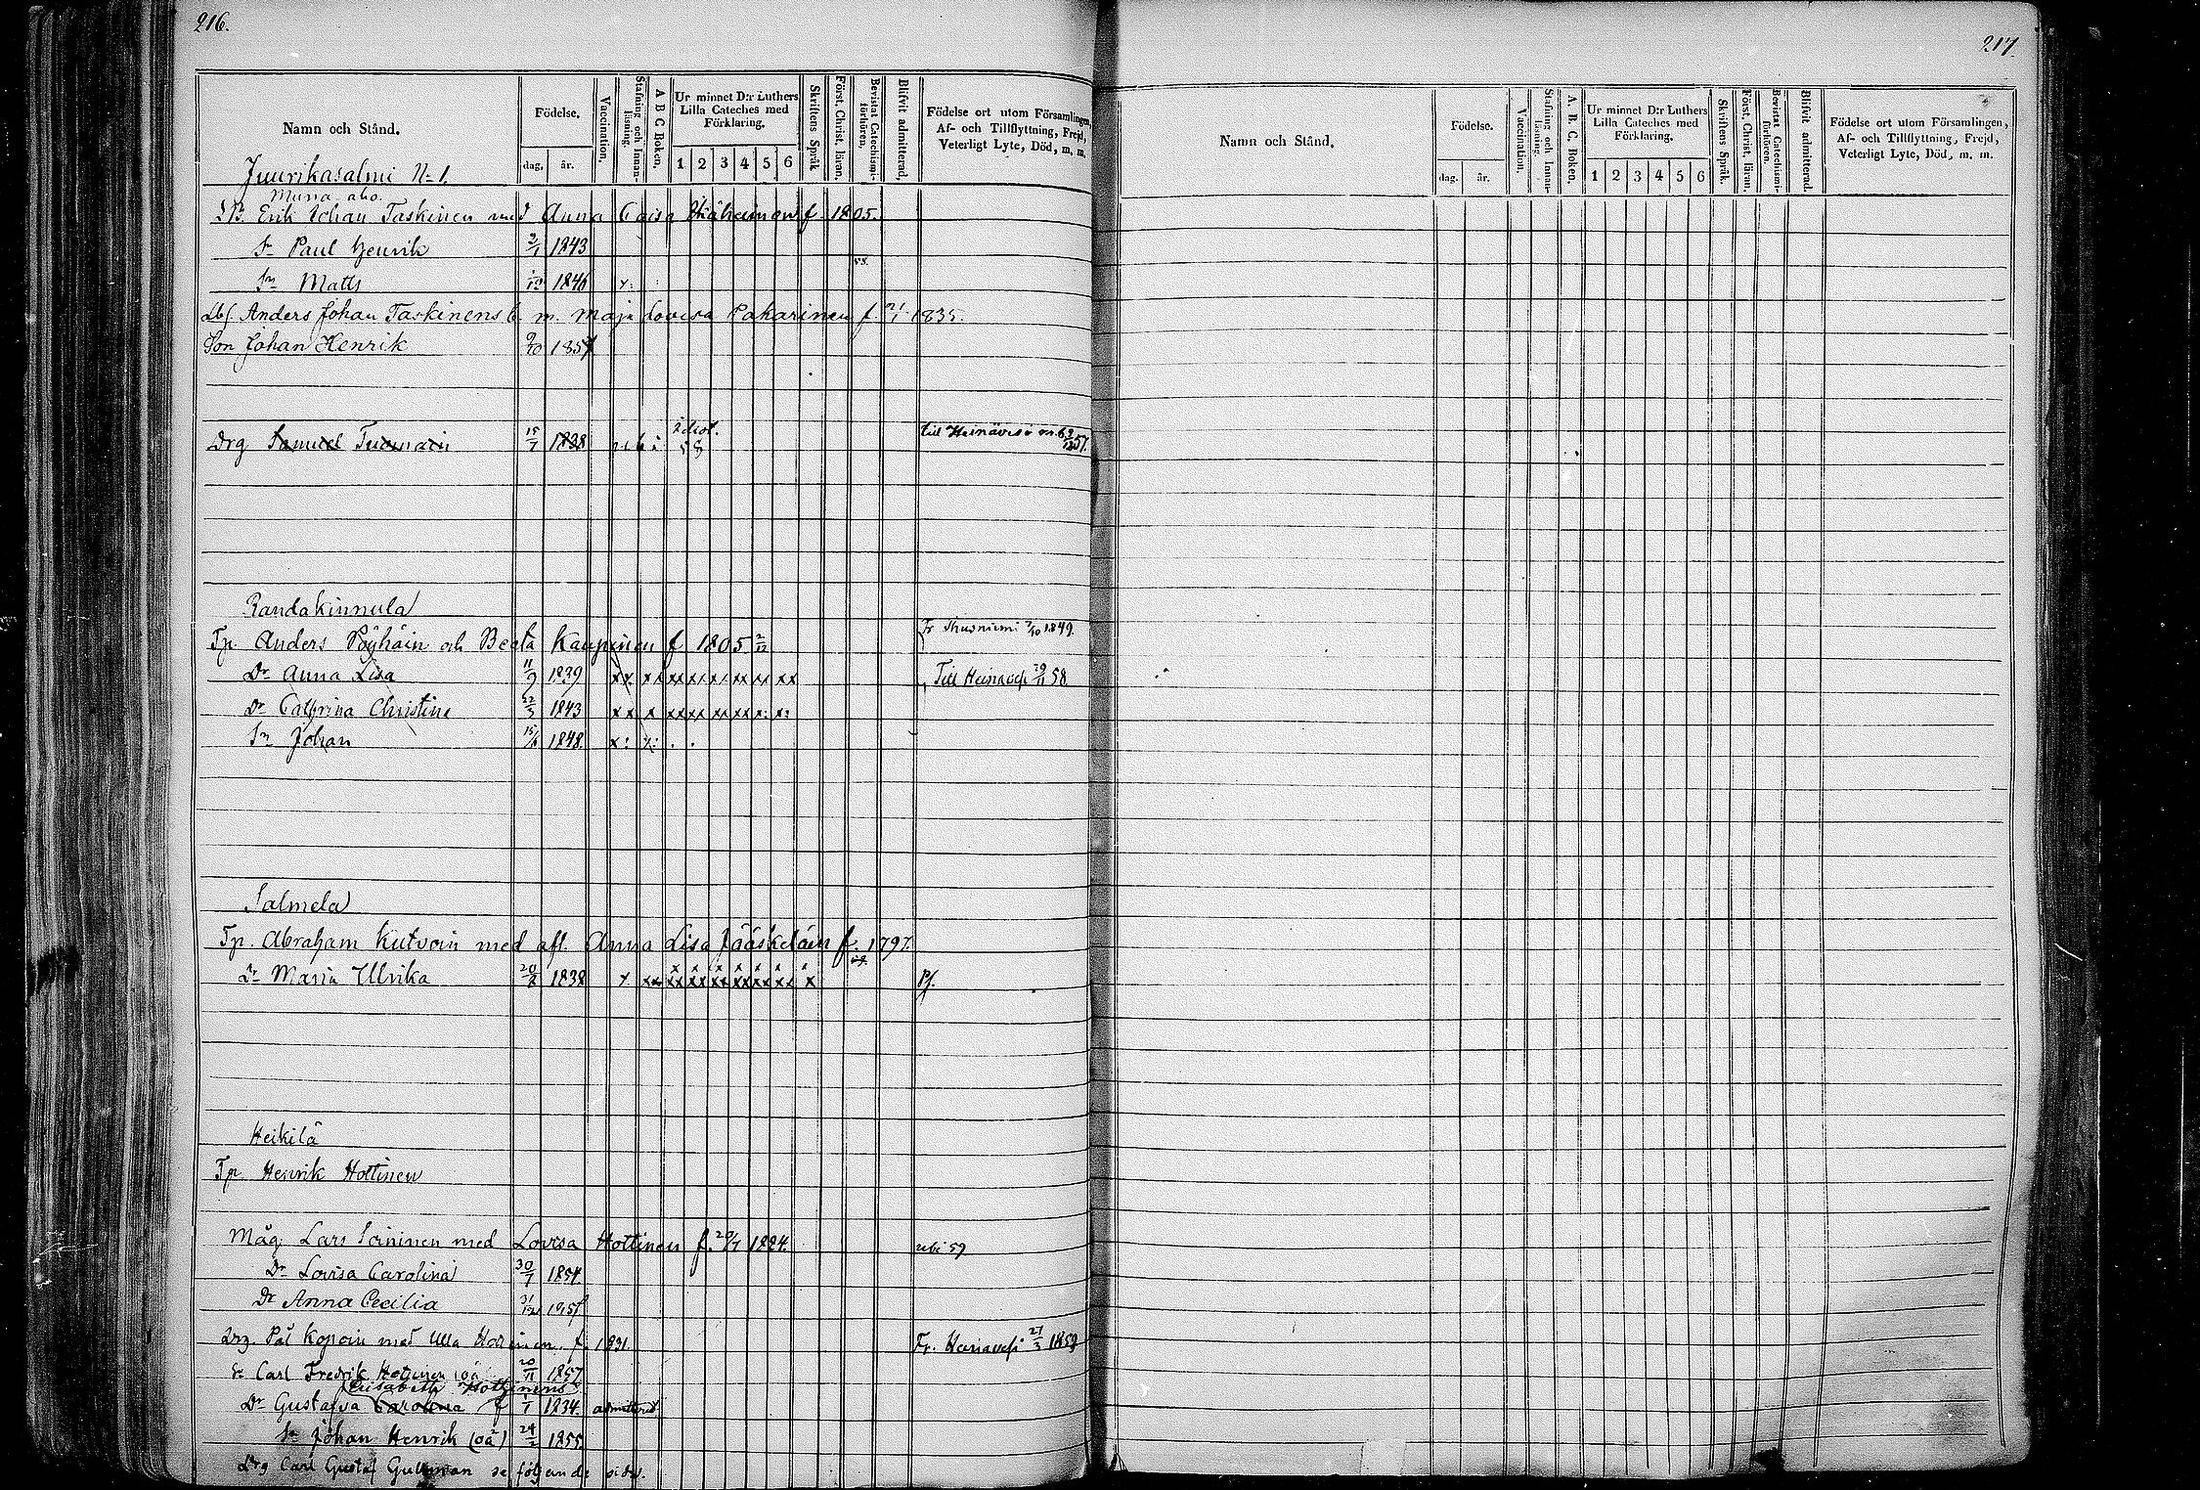 216.
Namn och Stånd.
Födelse.
dag. år.
Vaccination.
Stafning och Innan-läsning.
A B C Boken.
Ur minnet D:r Luthers Lilla Cateches med Förklaring.
1 2 3 4 5 6
Skriftens Språk
Först. Christ. läran.
Bevistat Catechismi-förhören.
Blifvit admitterad.
Födelse ort utom Församlingen,
Af- och Tillflyttning, Frejd,
Veterligt Lyte, Död, m. m.
Juurikasalmi N=1.
aho.
Erik Johan Taskinen med Anna Caisa f. 1805.
Sn Paul Henrik 2/1 1843
58.
Sn Matts 1846 x:
Lbf Anders Johan Taskinens m. Maja Lovisa Pakarinen f. 21/1 1835.
Son Johan Henrik 9/10 1857
Drg Samuel 15/7 1838 58 till Heinävesi 57.
Randakinnula
Tp. Anders Pöyhäin och Beata Kaupinen f 1805 2/12 Fr 1849.
Dr Anna Lisa 11/9 1839 xx xx xx xx xx xx xx xx Till Heinävesi 58
Dr Cathrina Christina 22/3 1843 xx x xx xx xx xx x: x:
Sn Johan 1848. x: x: . .
Salmela
Tp. Abraham Kutvoin med afl. Anna Lisa Jääskeläin f. 1797.
Dr Maria Ulrika 20/8 1838 x xx xx xx xx xx xx xx x Pf.
Heikilä
Tp. Henrik Hottinen
Måg. Lars Soininen med Lovisa Hottinen f. 1824. ubi 59
Dr Lovisa Carolina 30/7 1854.
Dr Anna Cecilia 31/12 1857
Drg. Pål Kopoin med Ulla Hottinen f. 1831. Fr. Heinävesi 27/3 1859
Sn Carl Fredrik Hottinen (oä) 20/11 1857
Elisabeth Hottinens
Dr Gustafva Carolina f 1/1 1834. admitterad
Sn Johan Henrik (oä) 24/2 1855.
Drg Carl Gustaf se följande sida.
217.
Namn och Stånd.
Födelse.
dag. år.
Vaccination.
Stafning och Innan-läsning.
A. B. C. Boken.
Ur minnet D:r Luthers Lilla Cateches med Förklaring.
1 2 3 4 5 6
Skriftens Språk.
Först. Christ. läran.
Bevistat Catechismi-förhören.
Blifvit admitterad.
Födelse ort utom Församlingen,
Af- och Tillflyttning, Frejd,
Veterligt Lyte, Död, m. m.